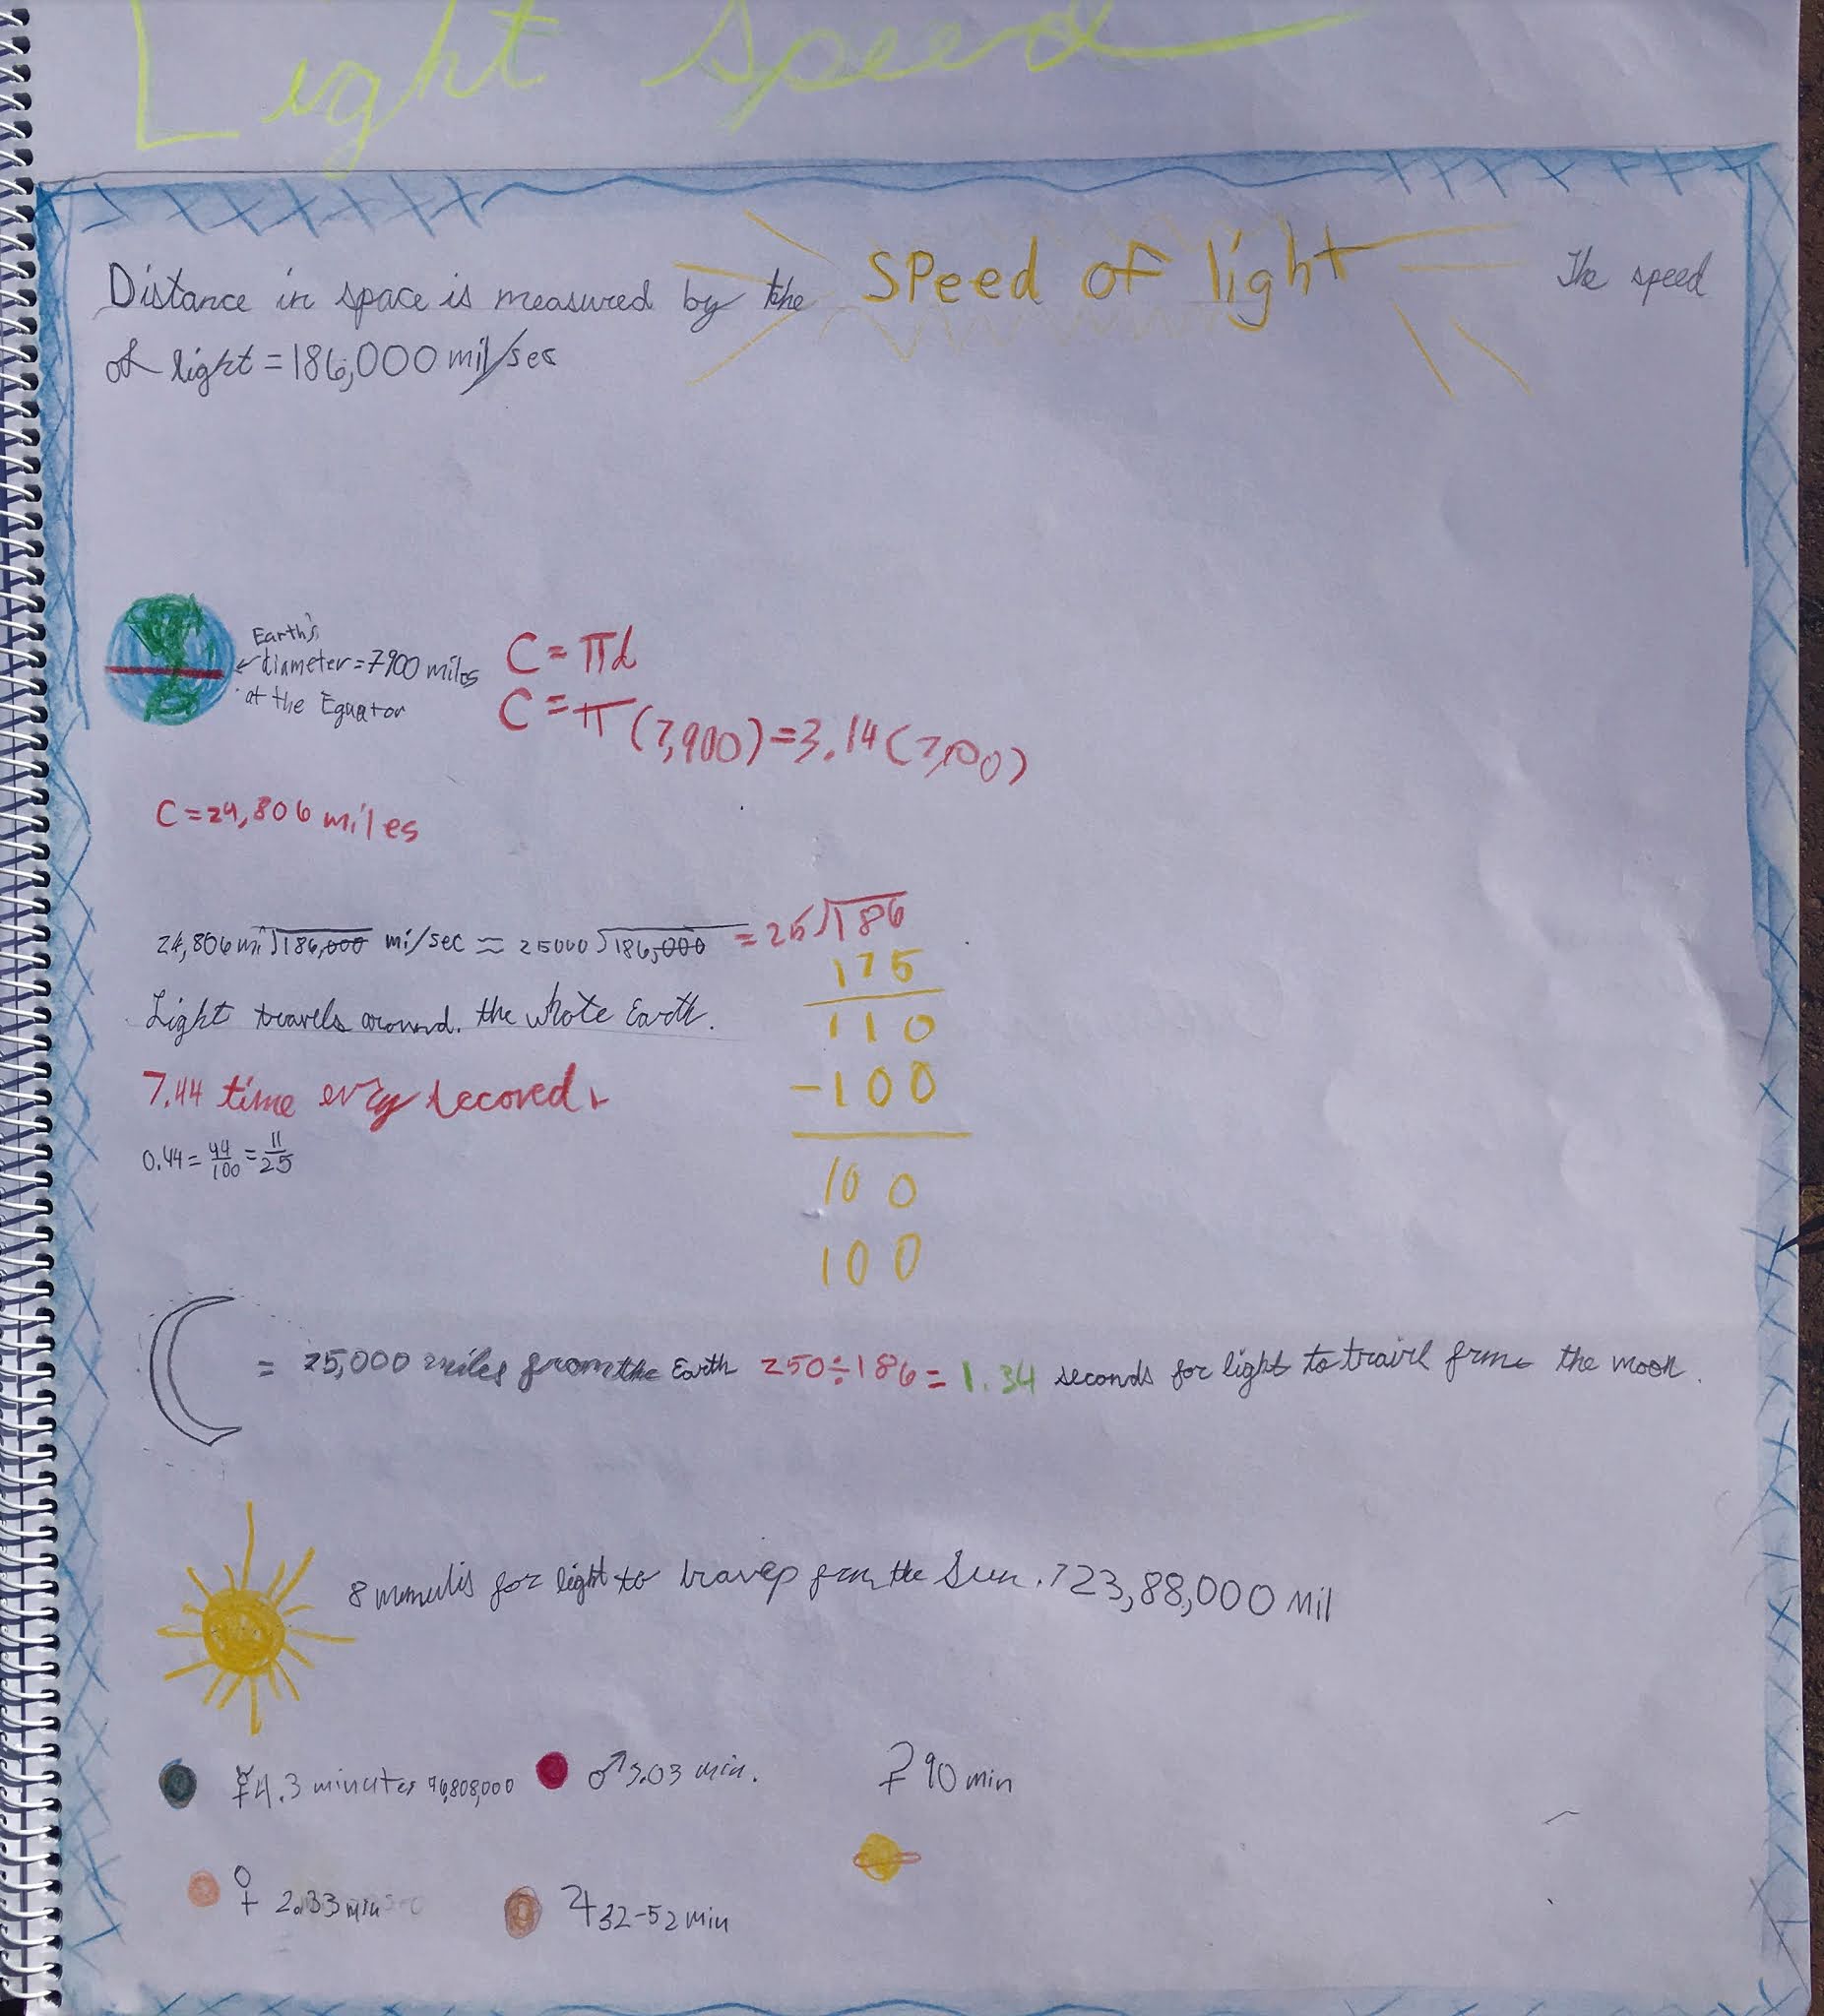 Light speed
Distance in space is measured by the SPeed of light The speed
of light = 186,000 mil/sec
Earth's
diameter = 7900 miles
at the Equator
C = πd
C = π(7,900) = 3.14(7,900)
C = 24,806 miles
24,806 mi⟌186,000 mi/sec ≈ 25000⟌186,000 = 25⟌186
175
Light travels around. the whole Earth.
110
7.44 time evry second
-100
0.44 = 44/100 = 11/25
100
100
= 25,000 miles from the Earth 250÷186 = 1.34 seconds for light to the moon.
8 for light to from the Sun. 23,88,000 Mil
☿ 4.3 minutes 96,808,000
♂ 3.03 min.
90 min
♀ 2.33 min
♃ 32-52 min